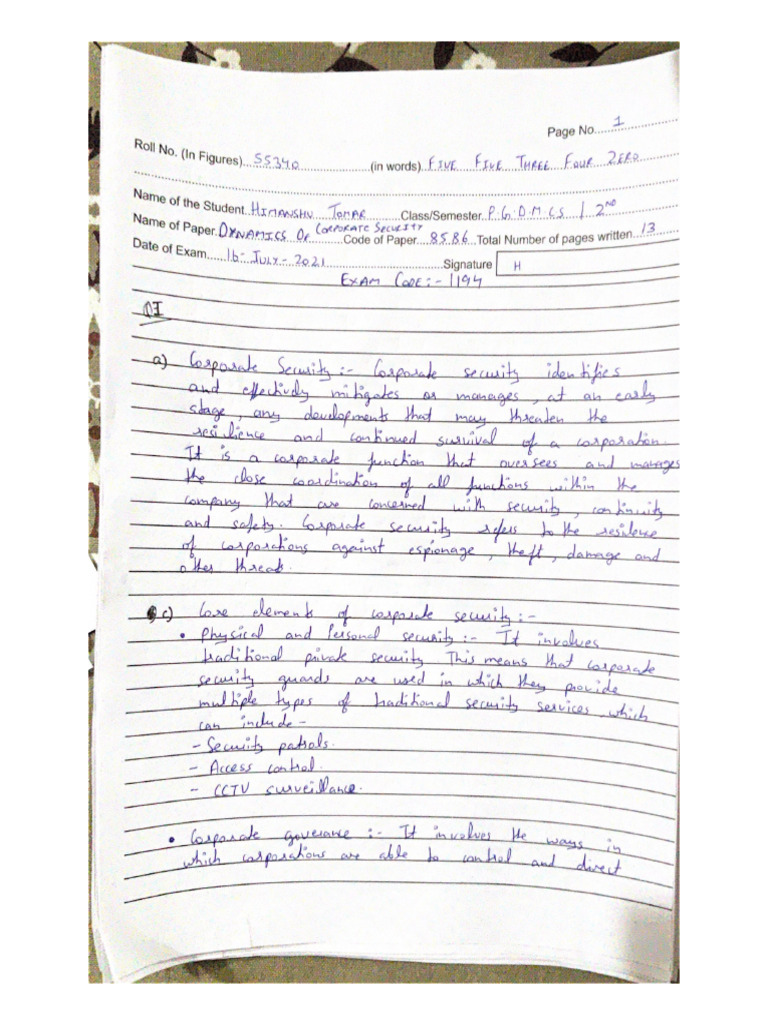 Page No. 1
Roll No. (In Figures) 55340 (in words) FIVE FIVE THREE FOUR ZERO
Name of the Student HIMANSHU TOMAR Class/Semester P.G.D.M.C.S / 2ND
Name of Paper DYNAMICS OF CORPORATE SECURITY Code of Paper 8586 Total Number of pages written 13
Date of Exam 16-JULY-2021 Signature H
EXAM CODE:- 1194
QI
a) Corporate Security :- Corporate security identifies
and effectively mitigates or manages, at an early
stage, any developments that may threaten the
resilience and continued survival of a corporation.
It is a corporate function that oversees and manages
the close coordination of all functions within the
company that are concerned with security, continuity
and safety. Corporate security refers to the resilence
of corporations against espionage, theft, damage and
other threats.
c) Core elements of corporate security :-
• Physical and Personal security :- It involves
traditional private security. This means that corporate
security guards are used in which they provide
multiple types of traditional security services which
can include -
- Security patrols.
- Access control.
- CCTV surveillance.
• Corporate goverance :- It involves the ways in
which corporations are able to control and direct